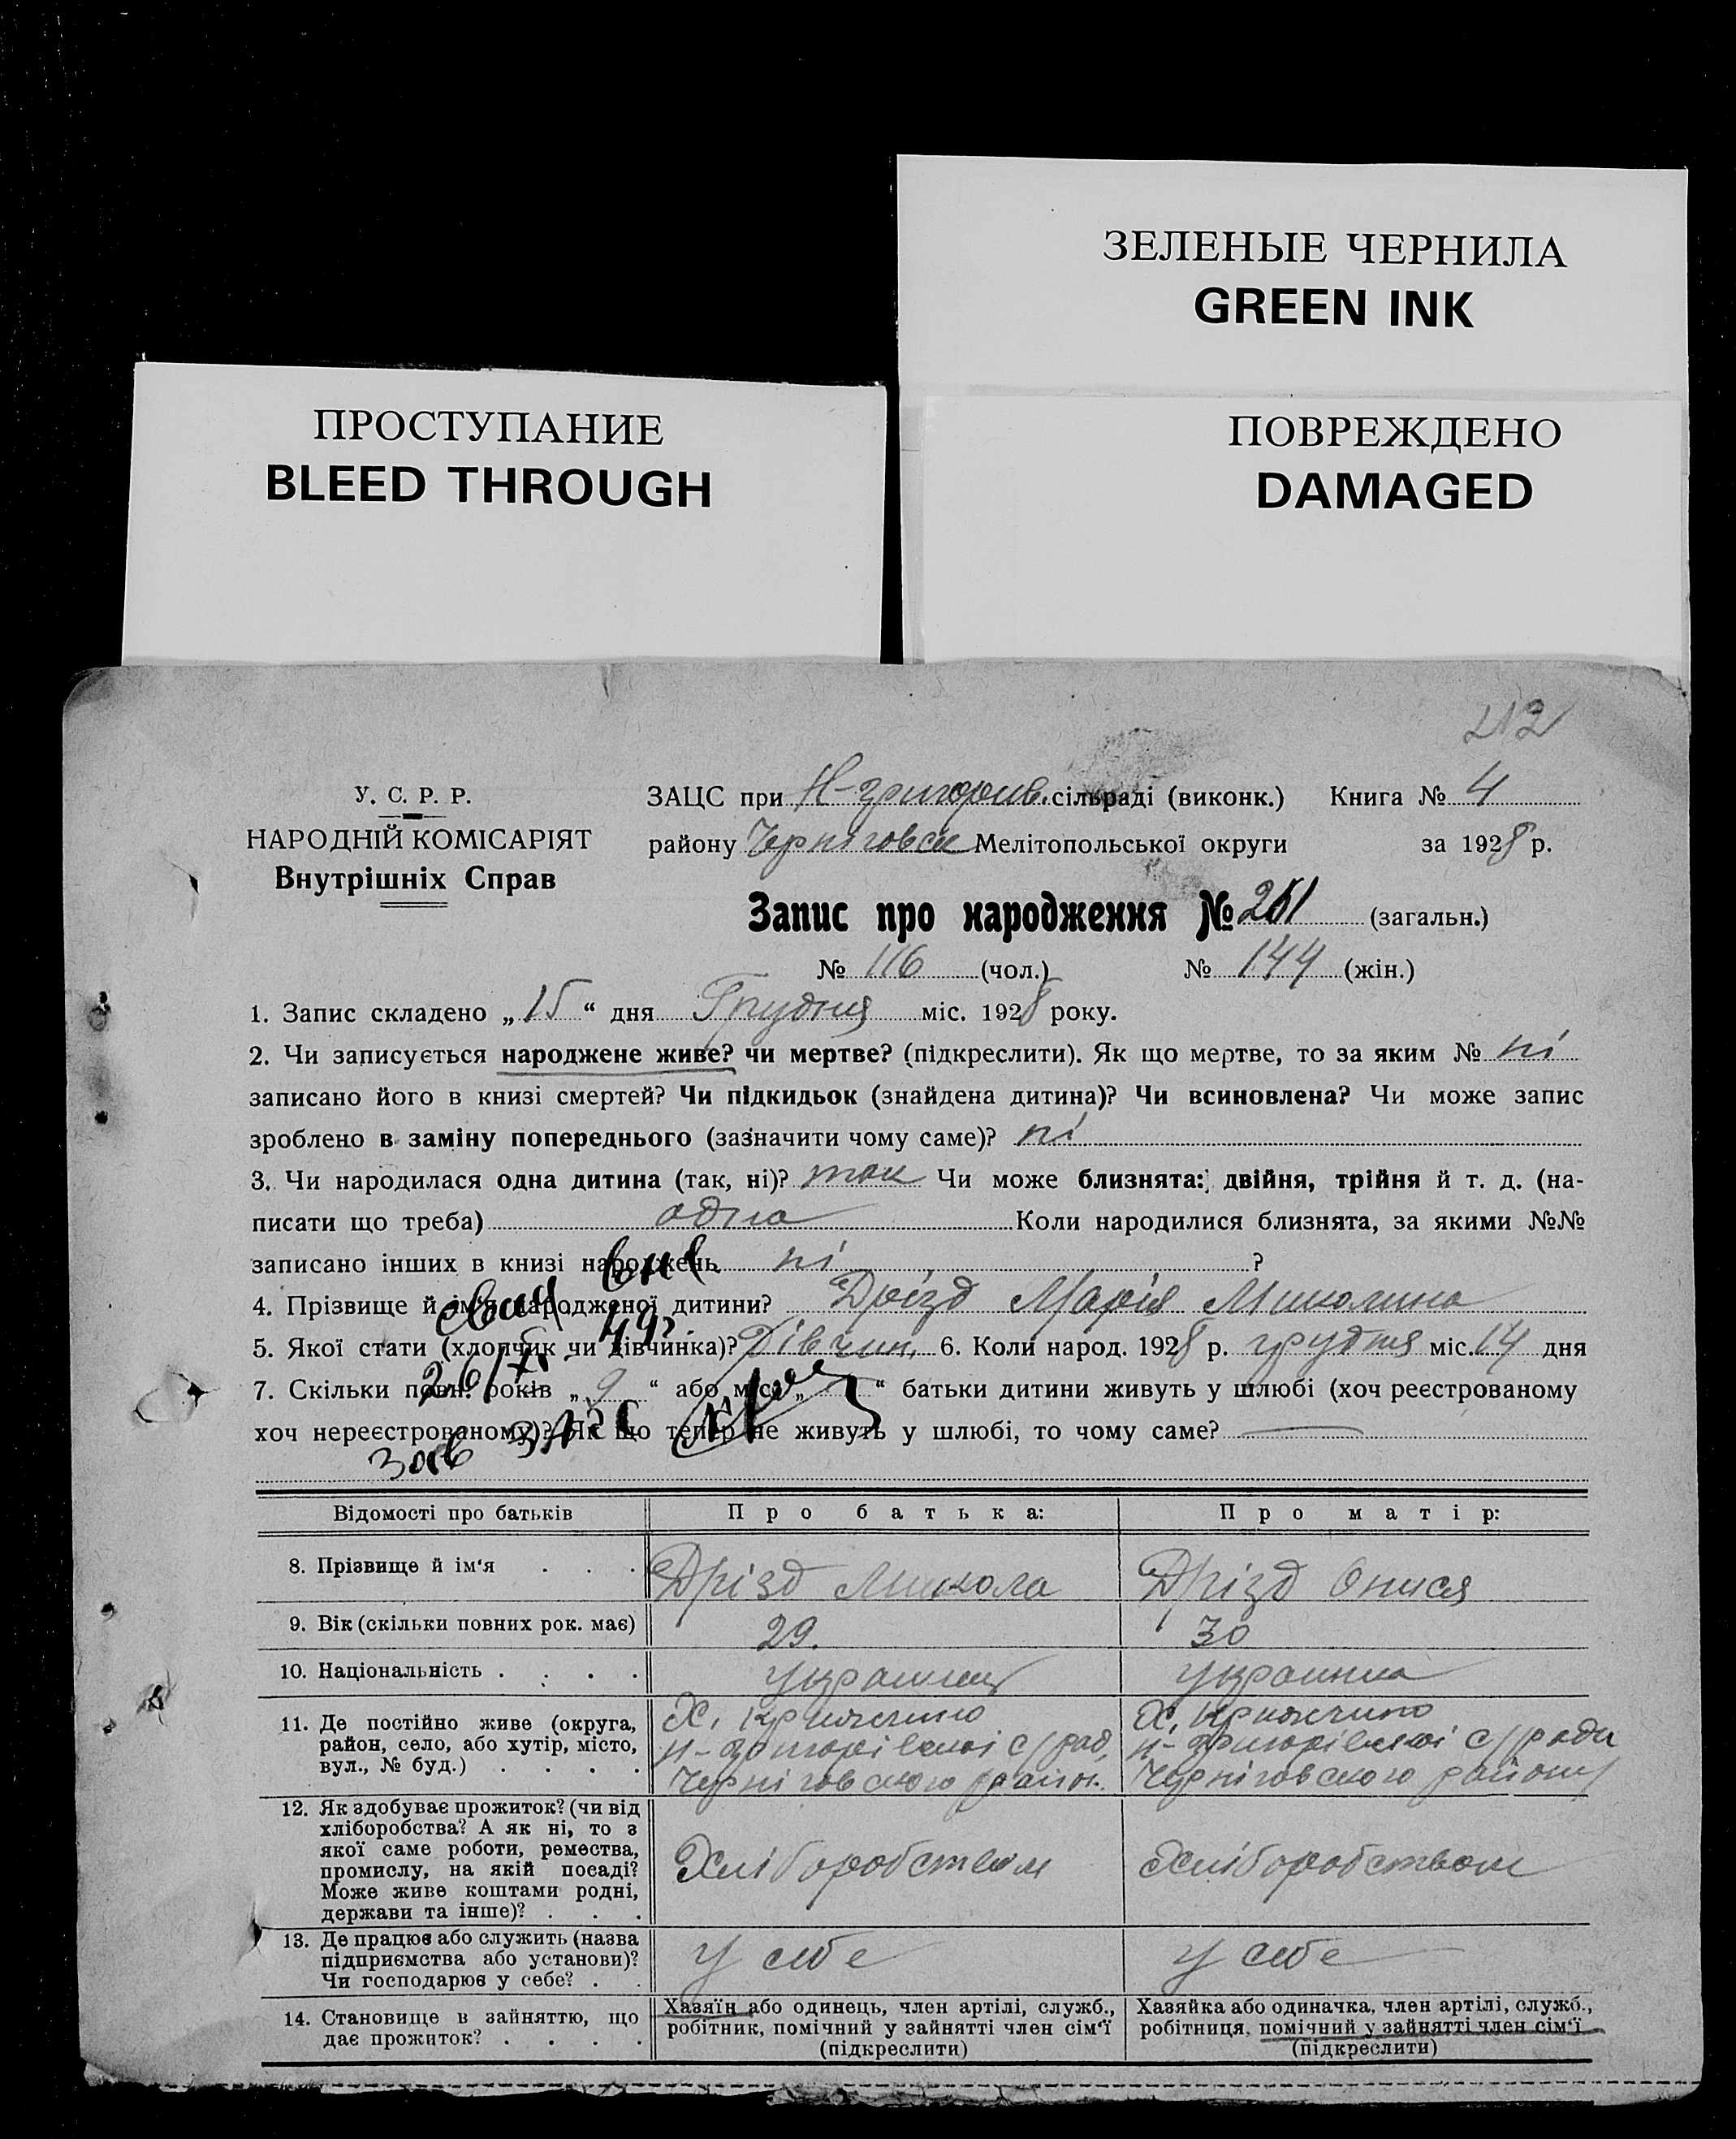 ЗЕЛЕНЫЕ ЧЕРНИЛА
GREEN INK
ПРОСТУПАНИЕ
BLEED THROUGH
ПОВРЕЖДЕНО
DAMAGED
212
У. С. Р. Р.
НАРОДНІЙ КОМІСАРІЯТ
Внутрішніх Справ
ЗАЦС при Н-григорів. сільраді (виконк.) Книга № 4
району Черніговск Мелітопольської округи за 1928 р.
Запис про народження № 261 (загальн.)
№ 116 (чол.) № 144 (жін.)
1. Запис складено „15“ дня Грудня міс. 1928 року.
2. Чи записується народжене живе? чи мертве? (підкреслити). Як що мертве, то за яким № ні
записано його в книзі смертей? Чи підкидьок (знайдена дитина)? Чи всиновлена? Чи може запис
зроблено в заміну попереднього (зазначити чому саме)? ні
3. Чи народилася одна дитина (так, ні)? так Чи може близнята: двійня, трійня й т. д. (на-
писати що треба) одна Коли народилися близнята, за якими №№
записано інших в книзі народжень ні ?
4. Прізвище й ім'я народженої дитини? Дрізд Марія Миколина
5. Якої статі (хлопчик чи дівчинка)? Дівчин. 6. Коли народ. 1928 р. грудня міс. 14 дня
7. Скільки повн. років „9“ або міся „ “ батьки дитини живуть у шлюбі (хоч реєстрованому
хоч нереєстрованому)? Як що тепер не живуть у шлюбі, то чому саме?
49г.
Зав ЗАГС
Відомості про батьків Про батька: Про матір:
8. Прізвище й ім'я . . . Дрізд Микола Дрізд Онися
9. Вік (скільки повних рок. має) 29. 30
10. Національність . . . . Украинец Украинка
11. Де постійно живе (округа,
район, село, або хутір, місто,
вул., № буд.) . . . .
Х.
н-григорівської с/рад,
Черніговського район.
Х.
н-григорівської с/ради
Черніговського району
12. Як здобуває прожиток? (чи від
хліборобства? А як ні, то з
якої саме роботи, ремества,
промислу, на якій посаді?
Може живе коштами родні,
держави та інше)? . . .
Хліборобством
Хліборобством
13. Де працює або служить (назва
підприємства або установи)?
Чи господарює у себе? . .
У себе
У себе
14. Становище в зайняттю, що
дає прожиток? . . . .
Хазяїн або одинець, член артілі, служб.,
робітник, помічний у зайнятті член сім'ї
(підкреслити)
Хазяйка або одиначка, член артілі, служб.,
робітниця, помічний у зайнятті член сім'ї
(підкреслити)